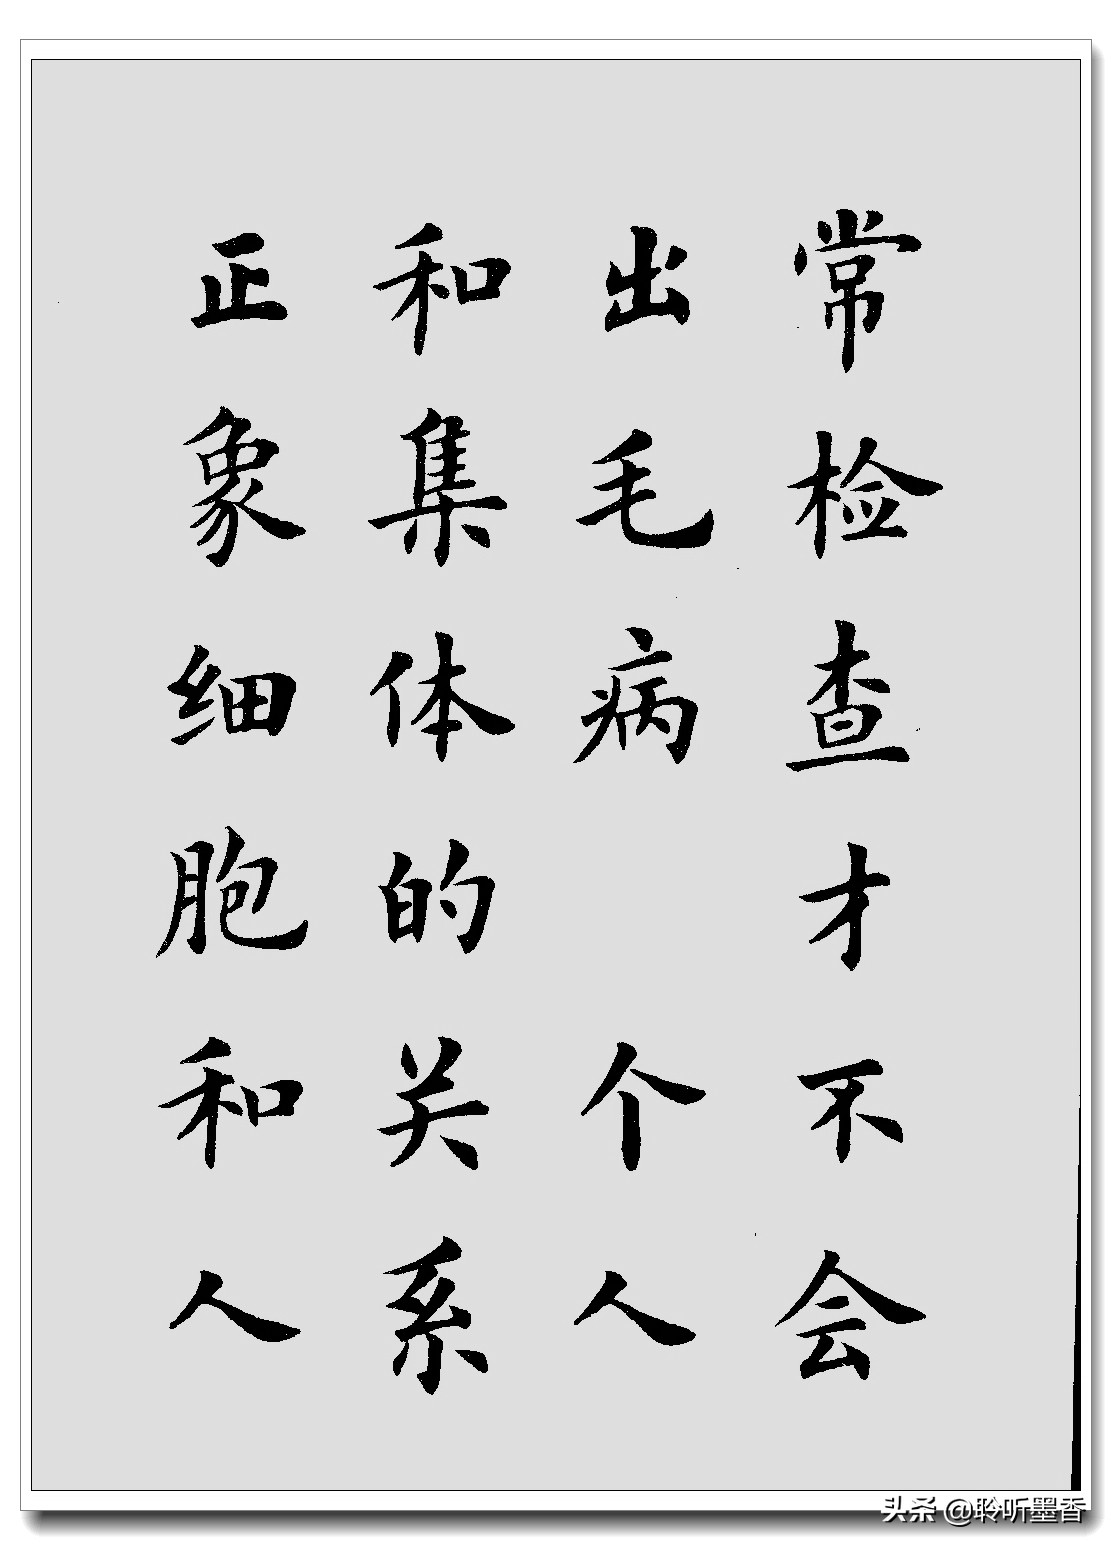 常检查才不会
出毛病 个人
和集体的关系
正象细胞和人
头条 @聆听墨香